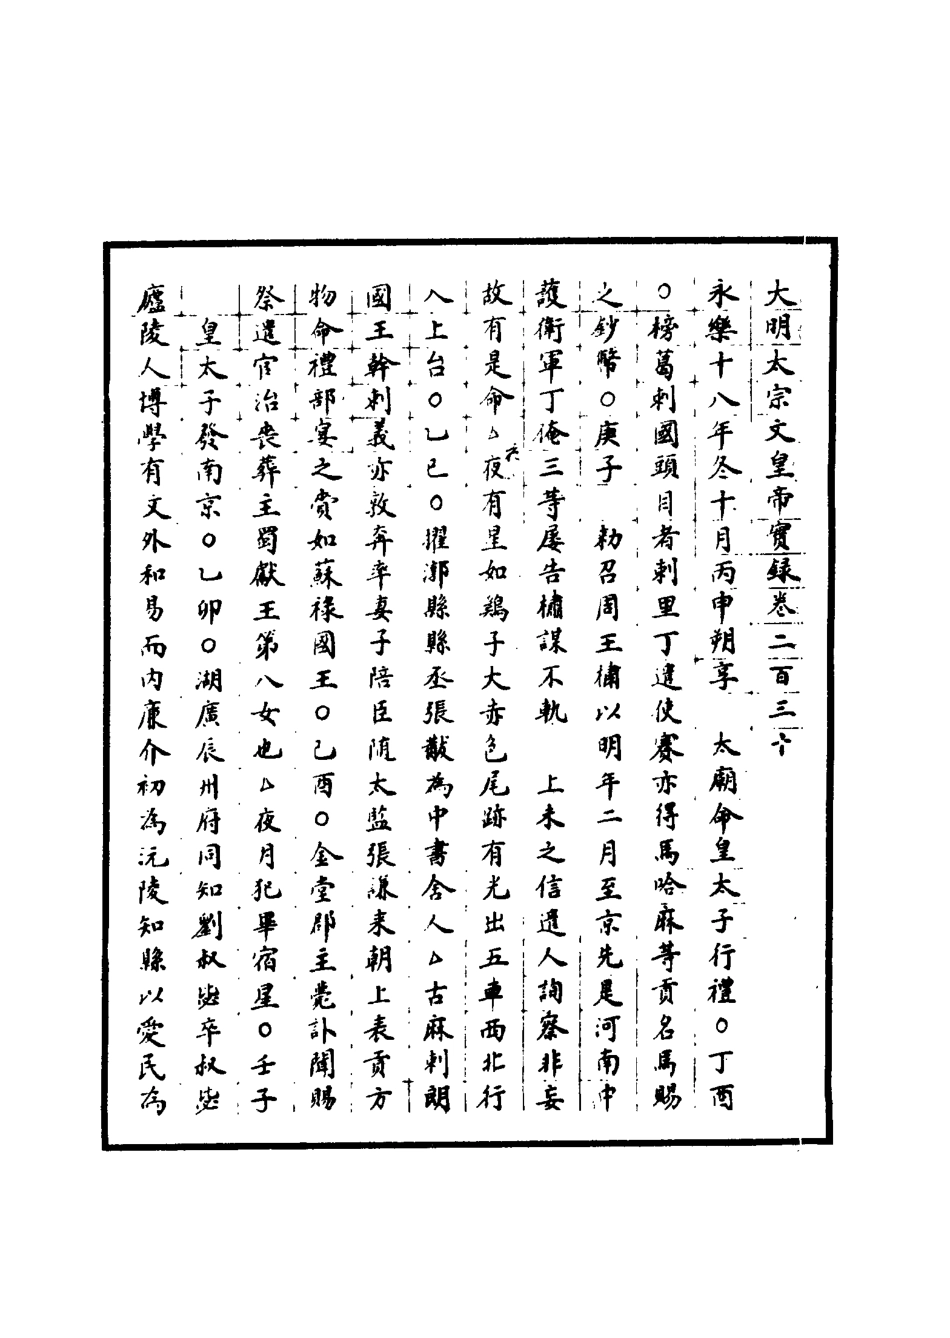 大明太宗文皇帝實録卷二百三十
永樂十八年冬十月丙申朔享　太廟命皇太子行禮○丁酉
○榜葛剌國頭目者剌里丁遣使賽亦得馬哈麻等貢名馬賜
之鈔幣○庚子　勑召周王橚以明年二月至京先是河南中
護衛軍丁俺三等屡告橚謀不軌　上未之信遣人詢察非妄
故有是命△夜有星如鷄子大赤色尾跡有光出五車西北行
入上台○乙巳○擢漷縣縣丞張黻為中書舍人△古麻剌朗
國王幹剌義亦敦奔率妻子陪臣随太監張謙来朝上表貢方
物命禮部宴之賞如蘇禄國王○己酉○金堂郡主薨訃聞賜
祭遣官治喪葬主蜀獻王第八女也△夜月犯畢宿星○壬子
皇太子發南京○乙卯○湖廣辰州府同知劉叔毖卒叔毖
廬陵人博學有文外和易而内廉介初為沅陵知縣以愛民為